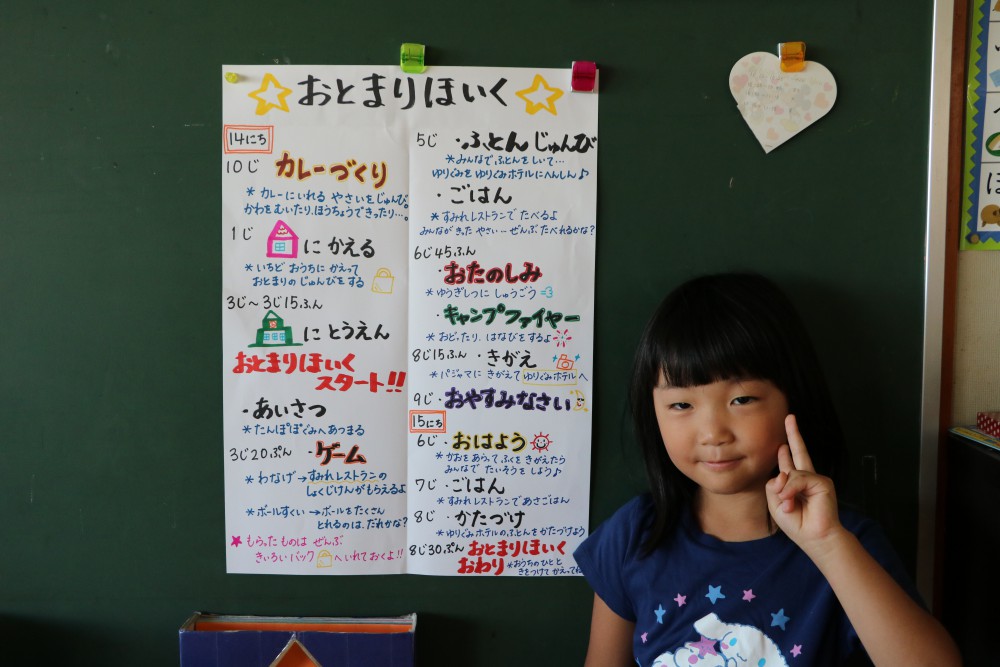 おとまりほいく
14にち
10じ カレーづくり
* カレーにいれる やさいをじゅんび。
かわをむいたり、ほうちょうできったり…。
1じ にかえる
* いちど おうちに かえって
おとまりのじゅんびをする
3じ〜3じ15ふん
にとうえん
おとまりほいく
スタート!!
・あいさつ
* たんぽぽぐみへあつまる
3じ20ぷん ・ゲーム
* わなげ→すみれレストランの
しょくじけんがもらえるよ
* ボールすくい→ボールをたくさん
とれるのは、だれかな?
★ もらったものは ぜんぶ
きいろいバック へいれておくよ!!
5じ ・ふとんじゅんび
* みんなで、ふとんをしいて…
ゆりぐみを ゆりぐみホテルにへんしん♪
・ごはん
* すみれレストランで たべるよ
みんながきった やさい…ぜんぶ、たべれるかな?
6じ45ふん
・おたのしみ
* ゆうぎしつに しゅうごう
・キャンプファイヤー
* おどったり、はなびをするよ
8じ15ふん ・きがえ
* パジャマに きがえて ゆりぐみホテルへ
9じ・おやすみなさい
15にち
6じ・おはよう
* かおをあらって、ふくをきがえたら
みんなで たいそうをしよう♪
7じ・ごはん
* すみれレストランであさごはん
8じ・かたづけ
* ゆりぐみホテルのふとんをかたづけよう
8じ30ぷん おとまりほいく
おわり * おうちのひとと
きをつけて かえってね
ほ